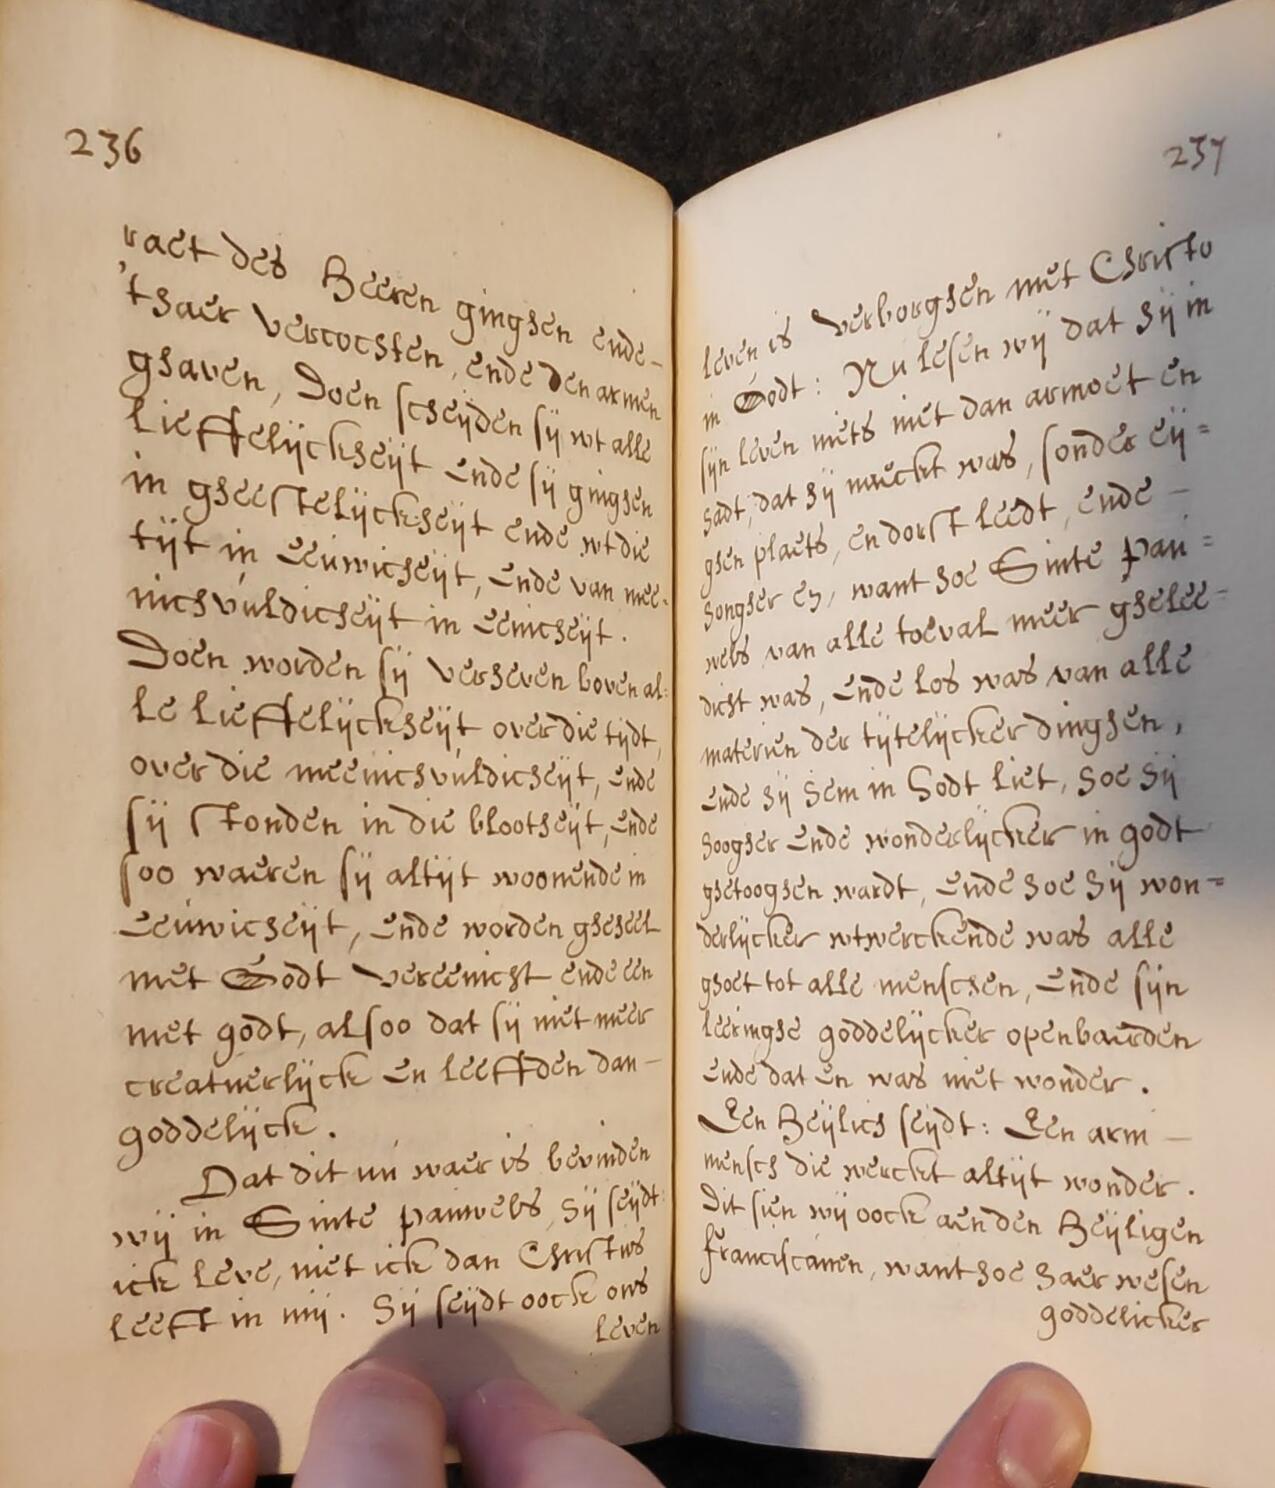 236
raet des Heeren ginghen ende –
'thaer vercochten, ende den armen
ghaven, Doen scheijden sij wt alle
lieffelijckheijt ende sij ginghen
in gheestelijckheijt ende wt die
tijt in eeúwicheijt, ende van mee-
nichvúldicheijt in eenicheijt.
Doen worden sij verheven boven al:
le lieffelijckheijt over die tijdt,
over die meenichvúldicheijt, ende
sij stonden in die blootheijt, ende
soo waeren sij altijt woonende in
eeúwicheijt, ende worden gheheel
met Godt vereenicht ende een
met godt, alsoo dat sij niet meer
creatuerlijck en leeffden dan –
goddelijck.
Dat dit nú waer is bevinden
wij in Sinte pauwels, hij seijdt:
ick leve, niet ick dan Christus
leeft in mij. Hij seijdt oock ons
leven
237
leven is verborghen met Christo
in Godt: Nu lesen wij dat hij in
sijn leven niets niet dan armoet en
hadt, dat hij naeckt was, sonder eij=
ghen plaets, en dorst leedt, ende –
hongher en, want hoe Sinte pau=
wels van alle toeval meer ghelee=
dicht was, ende los was van alle
materien der tijtelijcker dinghen,
ende hij hem in Godt liet, hoe hij
hoogher ende wonderlijcker in godt
ghetooghen wardt, ende hoe hij won=
derlijcker wtwerckende was alle
ghoet tot alle menschen, ende sijn
leeringhe goddelijcker openbaerden
ende dat en was niet wonder.
Een Heijlich seijdt: Een arm –
mensch die werckt altijt wonder.
Dit sien wij oock aen den Heijligen
franciscúnen, want hoe haer wesen
goddelicker